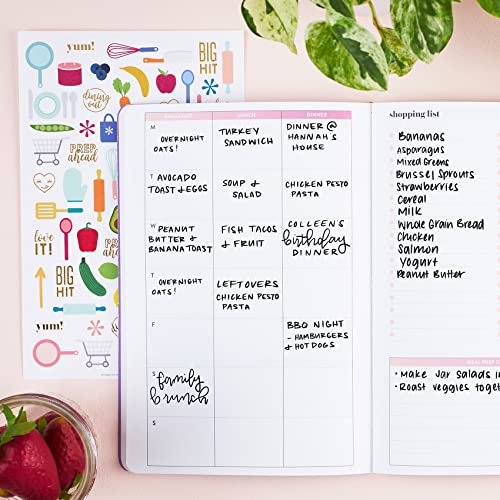 yum!
BIG
HIT
dining
out
PREP
ahead
love
IT!
BIG
HIT
PREP
ahead
yum!
LUNCH
DINNER
M
OVERNIGHT
OATS!
TURKEY
SANDWICH
DINNER @
HANNAH'S
HOUSE
T
AVOCADO
TOAST & EGGS
SOUP &
SALAD
CHICKEN PESTO
PASTA
W
PEANUT
BUTTER &
BANANA TOAST
FISH TACOS
& FRUIT
COLLEEN'S
birthday
DINNER
T
OVERNIGHT
OATS!
LEFTOVERS
CHICKEN PESTO
PASTA
F
BBQ NIGHT
- HAMBURGERS
& HOT DOGS
S
family
brunch
S
shopping list
BANANAS
ASPARAGUS
MIXED GREENS
BRUSSEL SPROUTS
STRAWBERRIES
CEREAL
MILK
WHOLE GRAIN BREAD
CHICKEN
SALMON
YOGURT
PEANUT BUTTER
MEAL PREP
• MAKE JAR SALADS
• ROAST VEGGIES TOGETH